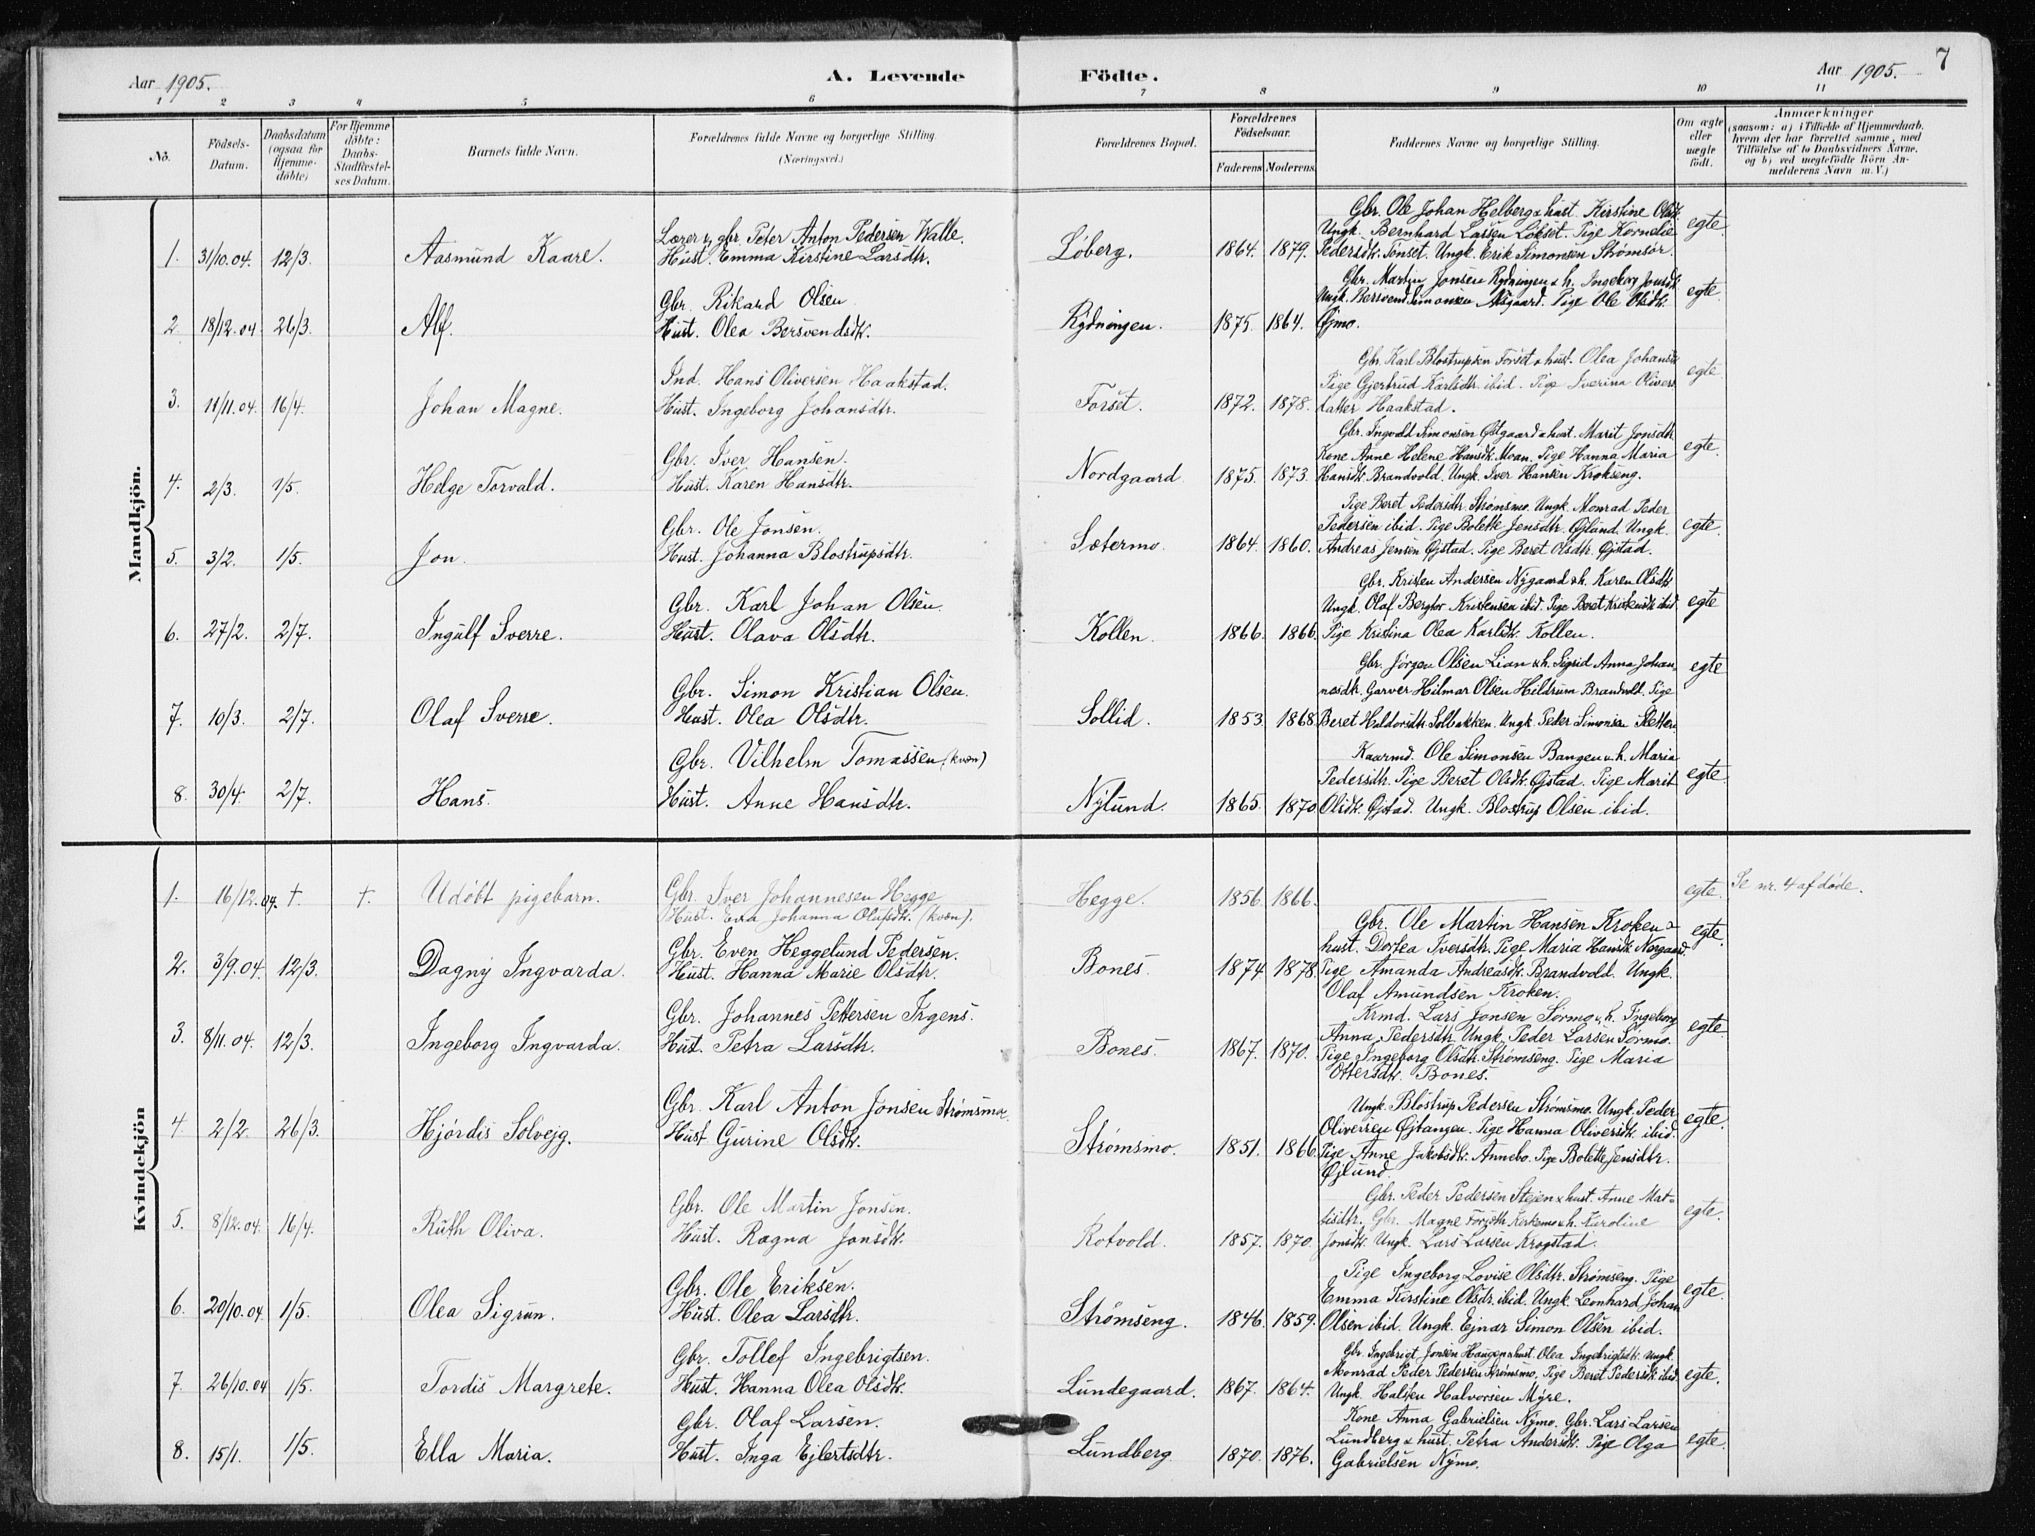 7
Aar 1905. A. Levende Födte. Aar 1905.
1 2 3 4 5 6 7 8 9 10 11
No.
Födsels-
Datum.
Daabsdatum
(ogsaa for
Hjemme-
döbte)
For Hjemme
döbte:
Daabs-
Stadfæstel-
ses Datum.
Barnets fulde Navn.
Forældrenes fulde Navne og borgerlige Stilling.
(Næringsvei.)
Forældrenes Bopæl.
Forældrenes
Födselsaar.
Faderens Moderens
Faddernes Navne og borgerlige Stilling.
Om ægte
eller
uægte
födt.
Anmærkninger
(saasom: a) i Tilfælde af Hjemmedaab,
hvem der har forrettet samme, med
Tilföielse af to Daabsvidners Navne,
og b) ved uegtefödte Börn An-
melderens Navn m. V.)
Mandkjön.
Gbr. Ole Johan Helberg & hust. Kirstine Olsdt.
Lærer & gbr. Peter Anton Pedersen Walle. Ungk. Bernhard Larsen Løkset. Pige Kornelie egte
1. 31/10.04. 12/3. Aasmund Kaare. Hust. Emma Kirstine Larsdtr. Løberg. 1864. 1879. Pedersdtr. Tonset. Ungk. Erik Simonsen Strømsør.
Gbr. Martin Jonsen Rydningen & h. Ingeborg Jonsdtr.
Gbr. Rikard Olsen Ungk. Bersvend Simonsen Aasgaard. Pige Ole Olsdtr. egte
2. 18/12.04 26/3. Alf. Hust. Olea Bersvendsdtr. Rydningen. 1875. 1864. Øjmo.
Gbr. Karl Blostrupsen Forset & hust. Olea Johansd
Ind. Hans Oliversen Haakstad. Pige Gjertrud Karlsdtr. ibid. Pige Iverina Olivers egte
3. 11/11.04. 16/4. Johan Magne. Hust. Ingeborg Johansdtr. Forset. 1872. 1878. datter Haakstad.
Gbr. Ingvald Simonsen Østgaard & hust. Marit Jonsdtr.
Gbr. Iver Hansen. Kone Anne Helene Hansdt. Moan. Pige Hanna Maria egte.
4. 2/3. 1/5. Helge Torvald. Hust. Karen Hansdtr. Nordgaard 1875. 1873. Hansdt. Brandvold. Ungk. Iver Hansen Krokseng.
Pige Beret Pedersdtr. Strømsmo. Ungk. Monrad Peder
Gbr. Ole Jonsen. Pedersen ibid. Pige Bolette Jensdtr. Øjlund. Ungk. egte.
5. 3/2. 1/5. Jon. Hust. Johanna Blostrupsdtr. Sætermo. 1864. 1860. Andreas Jensen Øjstad. Pige Beret Olsdtr. Øjstad.
Gbr. Kristen Andersen Nygaard & h. Karen Olsdtr
Gbr. Karl Johan Olsen. Ungk. Olaf Bergtor Kristensen ibid. Pige Beret Kristensdt. ibid. egte
6. 27/2. 2/7. Ingulf Sverre. Hust. Olava Olsdtr. Kollen. 1866. 1866. Pige Kristina Olea Karlsdt. Kollen.
Gbr. Jørgen Olsen Lian & h. Sigrid Anna Johan egte
Gbr. Simon Kristian Olsen. nesdtr. Garver Hilmar Olsen Hildrum Brandvold. Pige
7. 10/3. 2/7. Olaf Sverre. Hust. Olea Olsdtr. Sollid. 1853 1868. Beret Haldorsdtr Solbakken. Ungk. Peder Simonsen Sletten
Kaarmd. Ole Simonsen Bangen & h. Maria
Gbr. Vilhelm Tomassen. (kvæn) Pedersdtr. Pige Beret Olsdtr. Øjstad. Pige Marit egte.
8. 30/4. 2/7. Hans. Hust. Anne Hansdtr. Nylund. 1865. 1870 Olsdtr. Øjstad. Ungk. Blostrup Olsen ibid.
Kvindekjön
1. 16/12.04. † †. Udøbt pigebarn. Gbr. Iver Johannesen Hegge Hegge. 1856. 1866. egte. Se nr. 4 af døde.
Hust. Eva Johanna Olufsdt. (kvæn).
Gbr. Ole Martin Hansen Kroken &
Gbr. Even Heggelund Pedersen. hust. Dortea Iversdtr. Pige Maria Hansdt. Norgaard. egte.
2. 3/9.04. 12/3. Dagny Ingvarda. Hust. Hanna Marie Olsdtr. Bones. 1874 1878. Pige Amanda Andreasdt. Brandvold. Ungk.
Olaf Amundsen Kroken.
Gbr. Johannes Pettersen Irgens. Krmd. Lars Jonsen Sørmo & h. Ingeborg
Anna Pedersdtr. Ungk. Peder Larsen Sørmo. egte
3. 8/11.04. 12/3. Ingeborg Ingvarda. Hust. Petra Larsdtr. Bones. 1867. 1870. Pige Ingeborg Olsdtr. Strømseng. Pige Maria
Ottersdtr. Bones.
Gbr. Karl Anton Jonsen Strømsmo. Ungk. Blostrup Pedersen Strømsmo. Ungk. Peder
4 2/2. 26/3. Hjørdis Solvejg. Hust. Gurine Olsdt. Oliversen Øjtangen. Pige Hanna Oliversdt. ibid. egte.
Strømsmo. 1851. 1866. Pige Anne Jakobsdt. Annebo. Pige Bolette Jensdtr.
Øjlund.
Gbr. Ole Martin Jonsen. Gbr. Peder Pedersen Stejen & hust. Anne Mat-
5. 8/12.04. 16/4. Ruth Oliva. tisdtr. Gbr. Magne Kirkemo & h. Karoline egte.
Hust. Ragna Jonsdt. Rotvold. 1857. 1870. Jonsdt. Ungk. Lars Larsen Krogstad.
Pige Ingeborg Lovise Olsdtr. Strømseng. Pige
Gbr. Ole Eriksen. Emma Kirstine Olsdtr. ibid. Ungk. Leonhard Johan egte.
6. 20/10.04 1/5. Olea Sigrun. Hust. Olea Larsdtr. Strømseng. 1846. 1859. Olsen ibid. Ungk. Ejnar Simon Olsen ibid.
Gbr. Ingebrigt Jonsen Haugen & hust. Olea Ingebrigtsdt. Ungk.
Gbr. Tollef Ingebrigtsen. Monrad Peder Pedersen Strømsmo. Pige Beret Pedersdt. ibid. egte.
7. 26/10.04 1/5. Tordis Margrete. Hust. Hanna Olea Olsdt. Lundegaard. 1867. 1864. Ungk. Halsten Halvorsen Myre.
Kone Anna Gabrielsen Nymo. Gbr. Lars Larsen
Gbr. Olaf Larsen. Lundberg & hust. Petra Andersdt. Pige Olga egte.
8. 15/1. 1/5. Ella Maria. Hust. Inga Ejlertsdtr. Lundberg 1870. 1876. Gabrielsen Nymo.